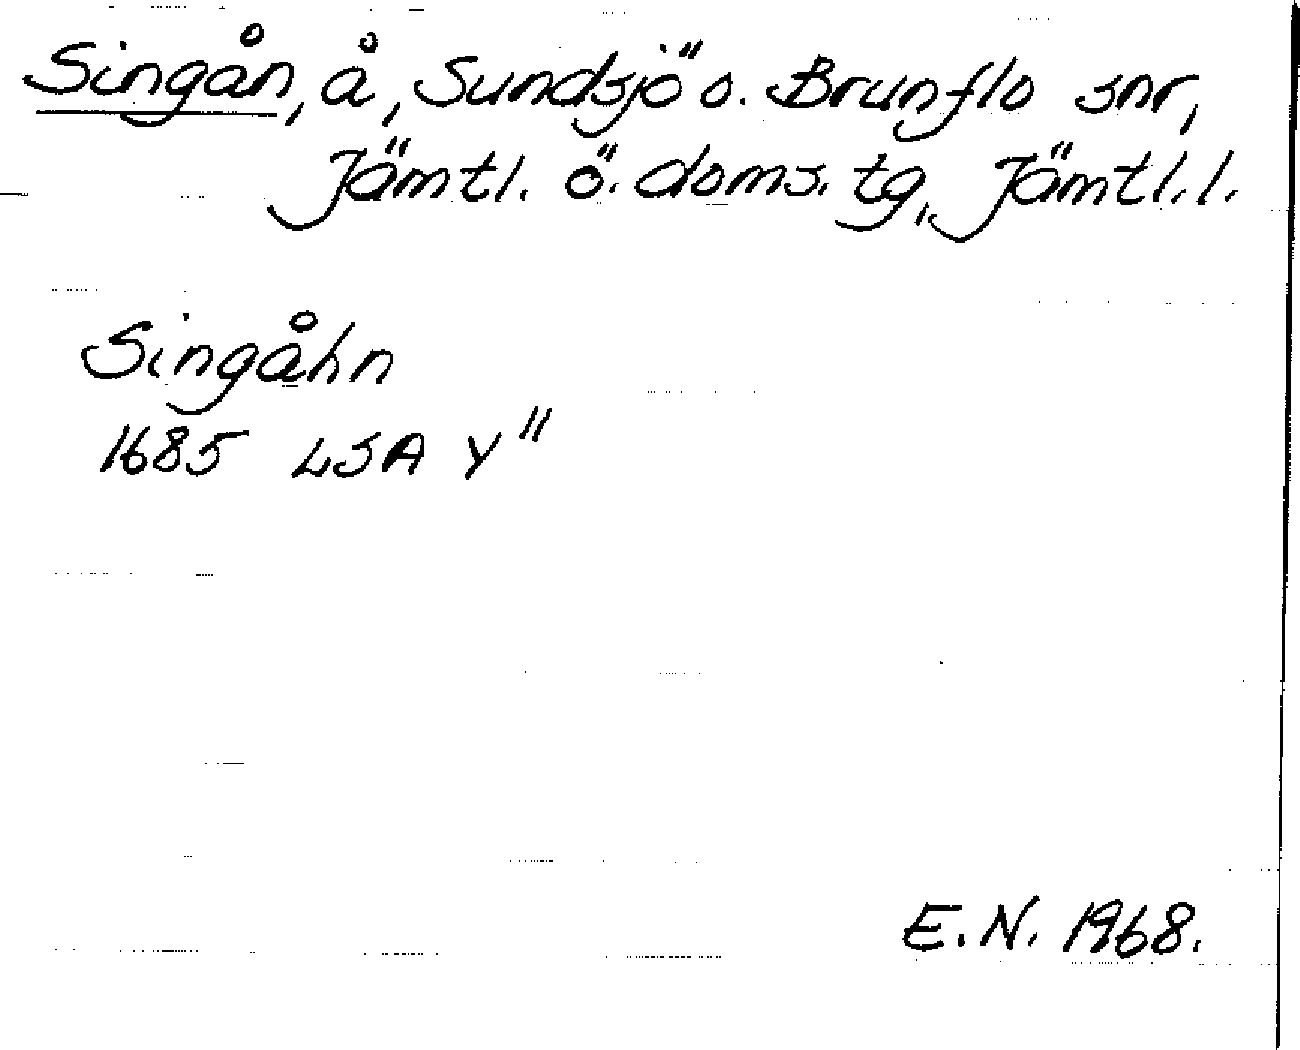 Singån, å, Sundsjö o. Brunflo snr,
Jämtl. ö. doms. tg, Jämtl. l.
Singåhn
1685 LSA Y"
E.N. 1968.